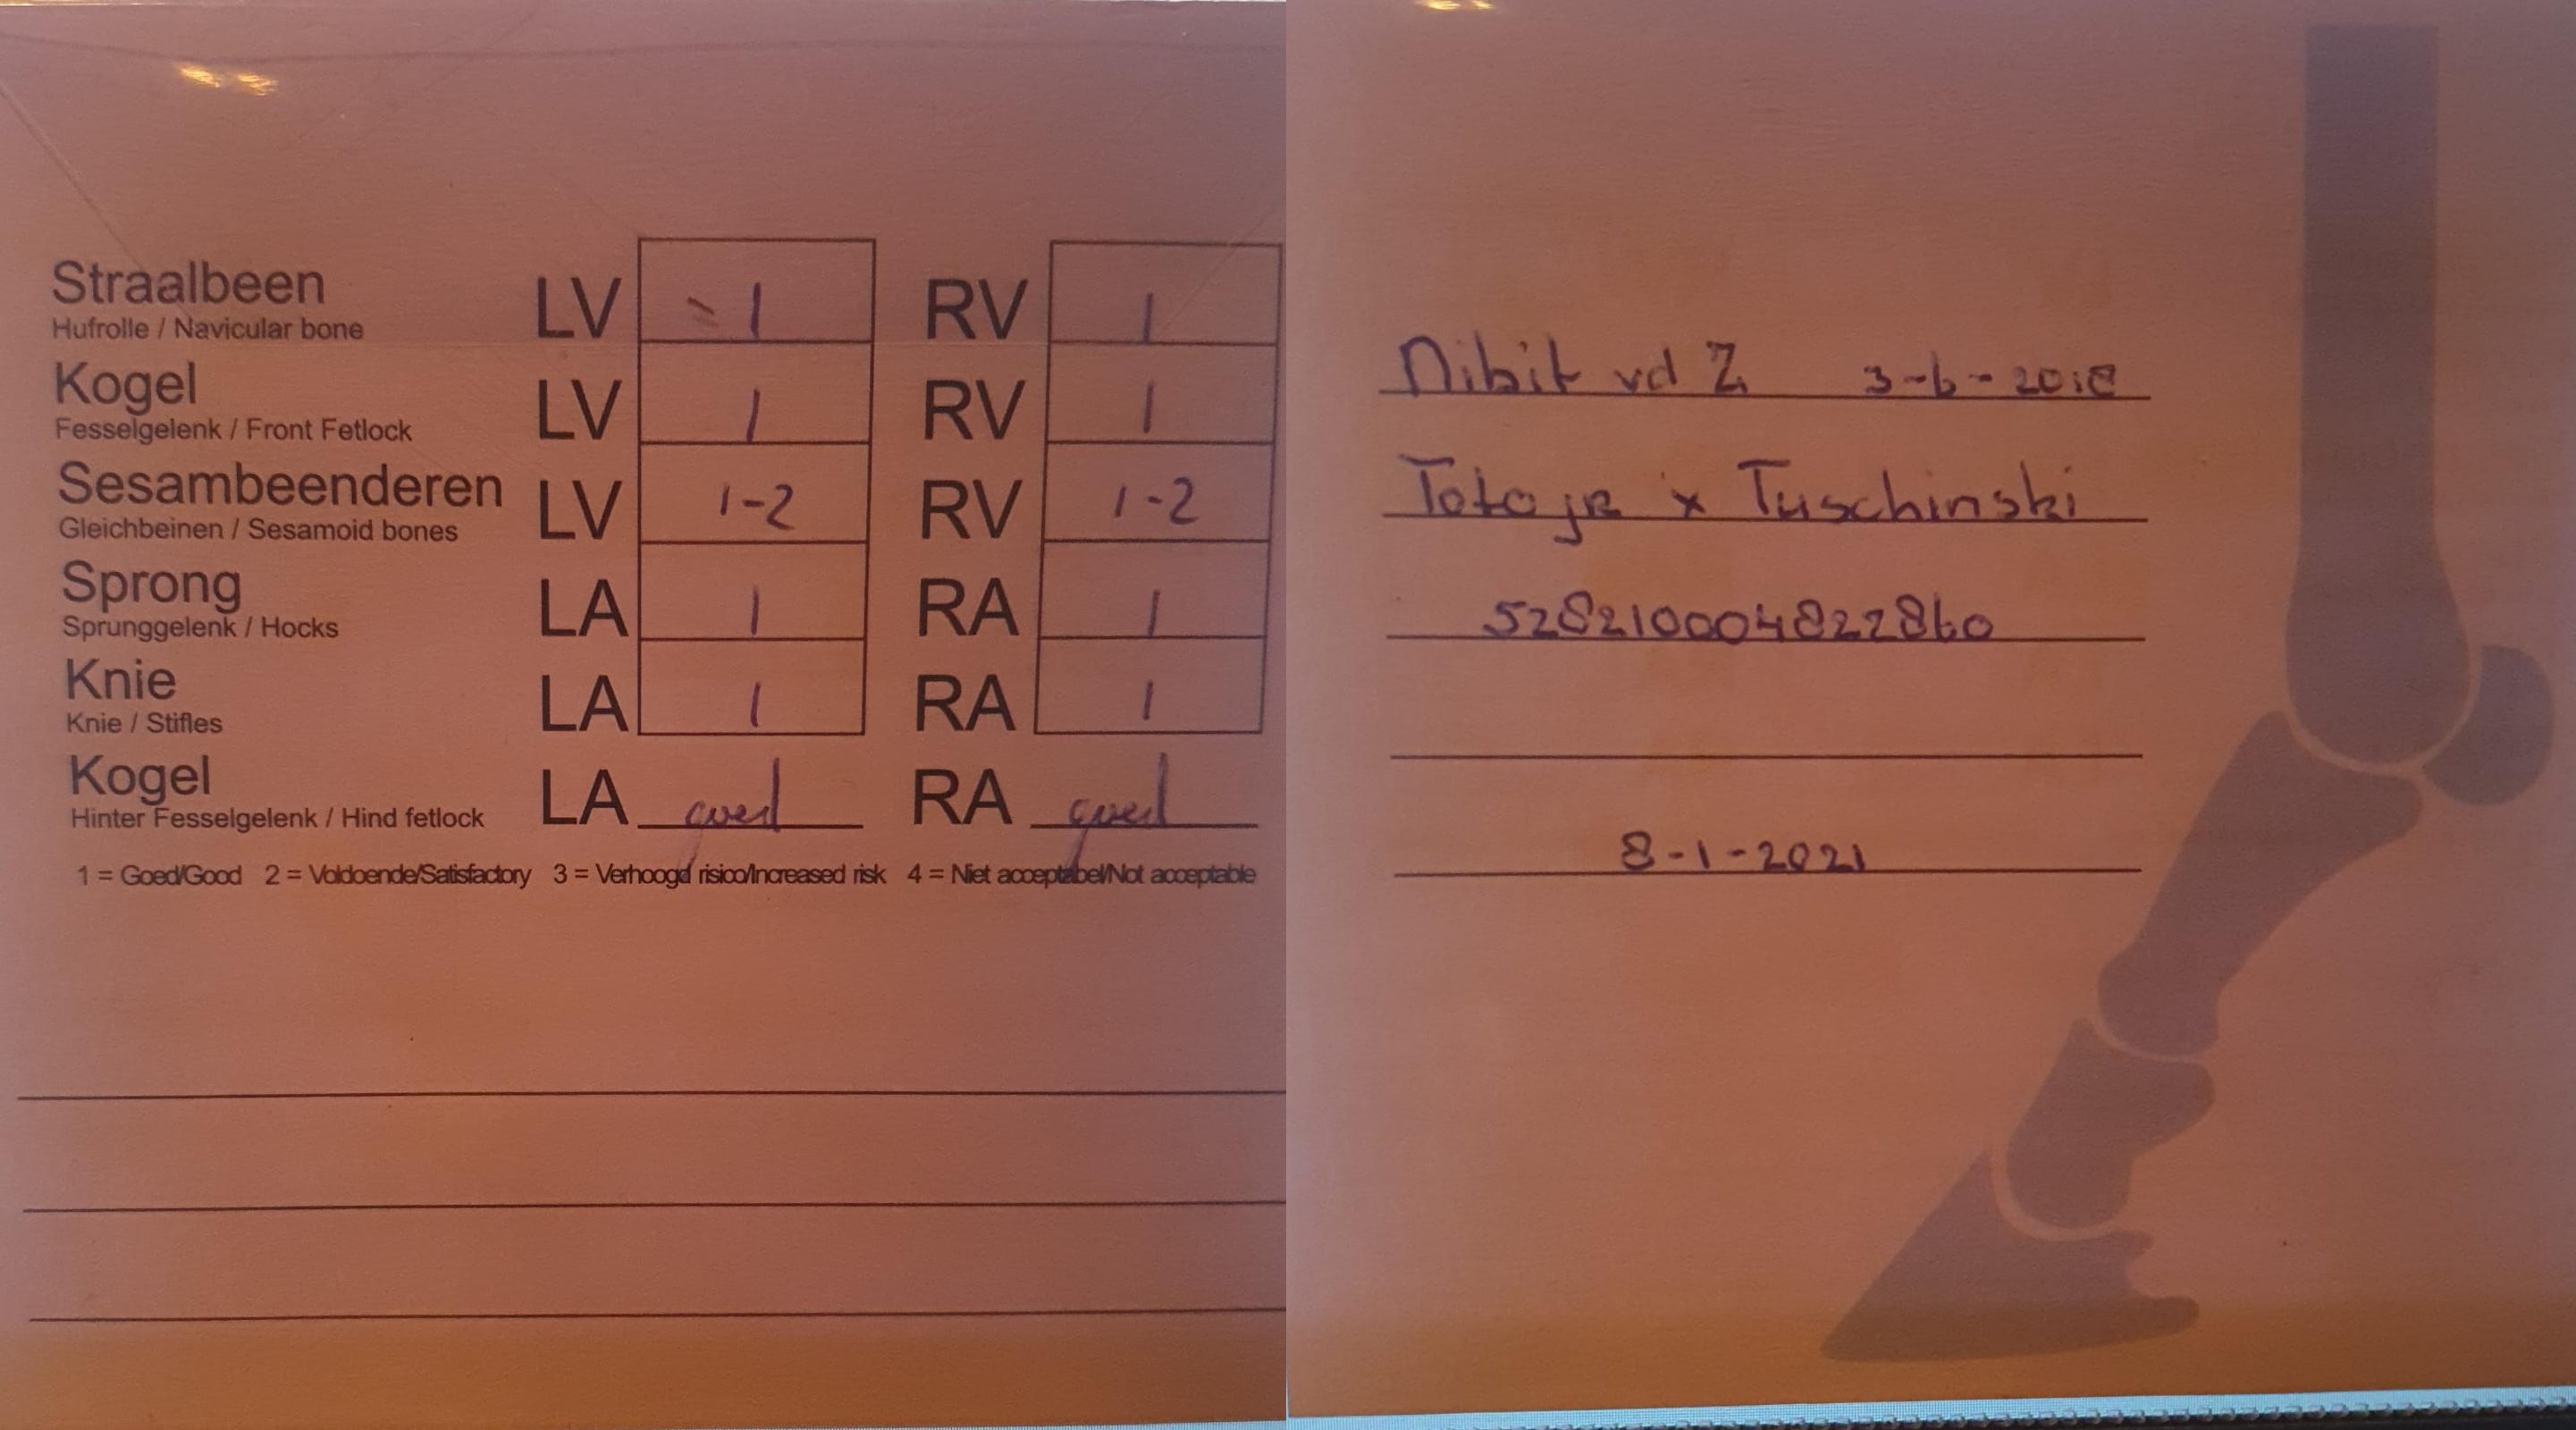 Straalbeen LV 1 RV 1
Hufrolle / Navicular bone
Kogel LV 1 RV 1
Fesselgelenk / Front Fetlock
Sesambeenderen LV 1-2 RV 1-2
Gleichbeinen / Sesamoid bones
Sprong LA 1 RA 1
Sprunggelenk / Hocks
Knie LA 1 RA 1
Knie / Stifles
Kogel LA goed RA goed
Hinter Fesselgelenk / Hind fetlock
1 = Goed/Good 2 = Voldoende/Satisfactory 3 = Verhoogd risico/Increased risk 4 = Niet acceptabel/Not acceptable
Nibit vd Z 3-6-2018
Toto jr x Tuschinski
528210004822860
8-1-2021